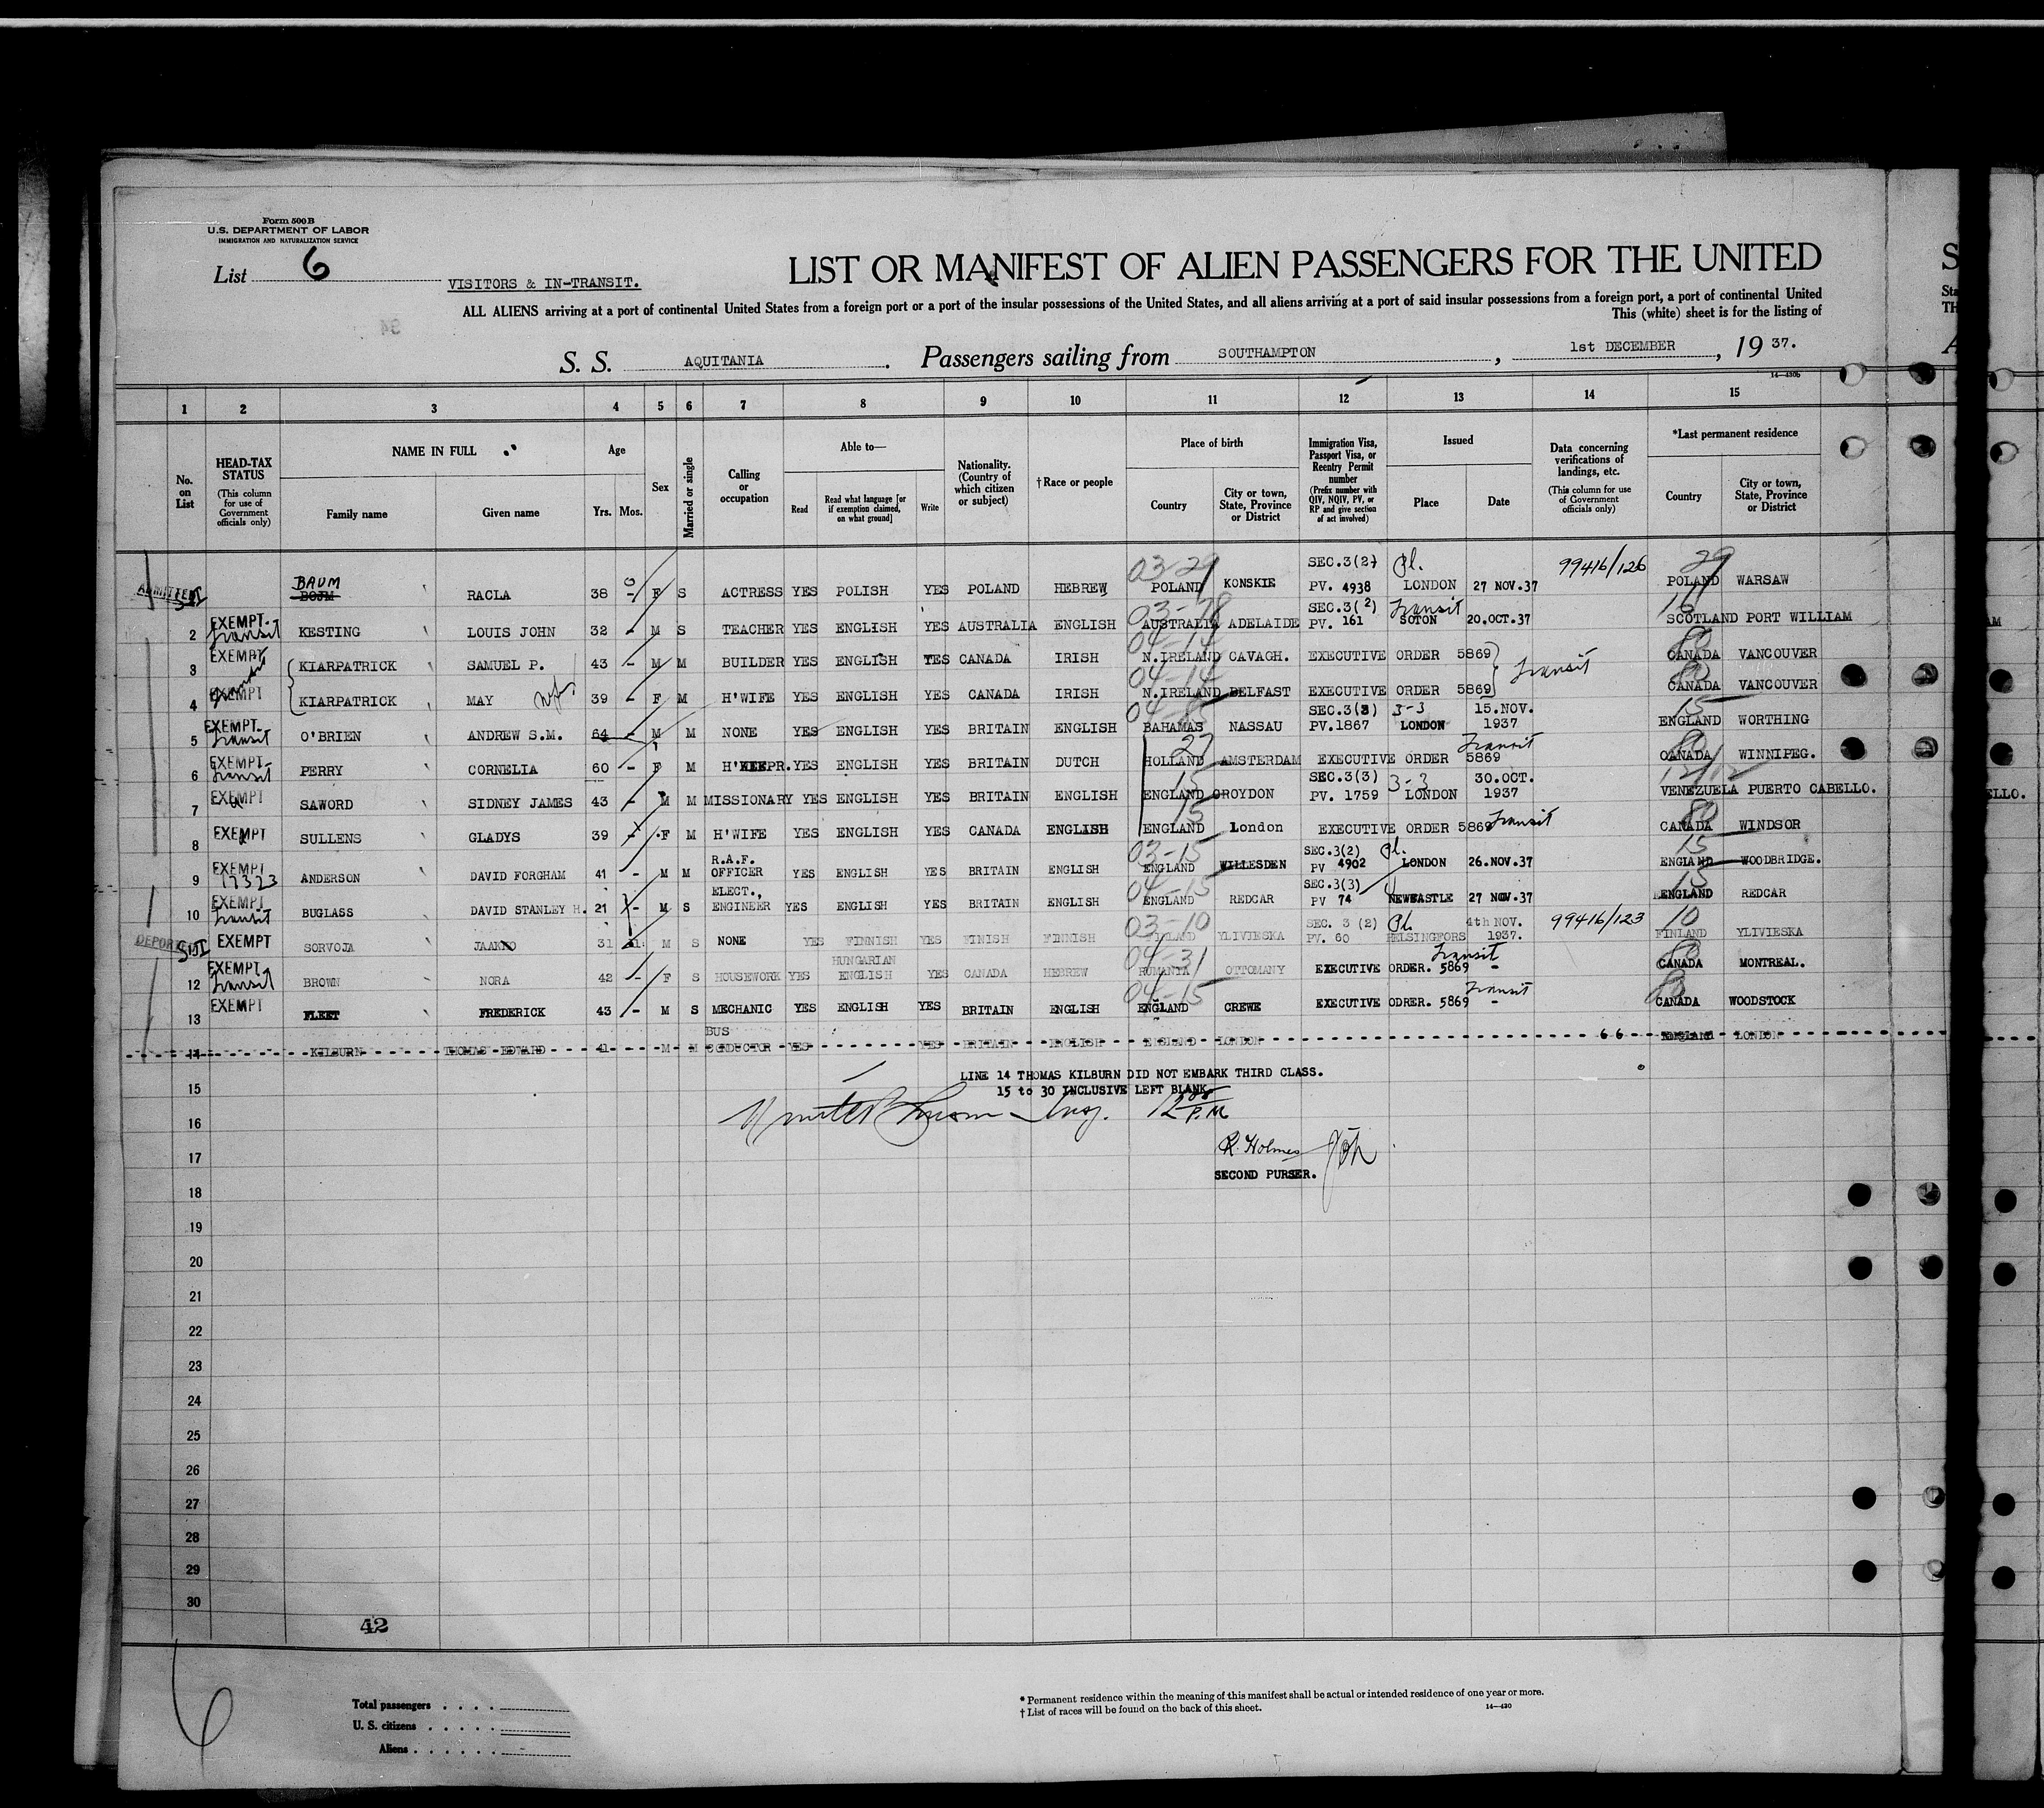 Form 500 B
U.S. DEPARTMENT OF LABOR
IMMIGRATION AND NATURALIZATION SERVICE
List 6
VISITORS & IN-TRANSIT.
LIST OR MANIFEST OF ALIEN PASSENGERS FOR THE UNITED
ALL ALIENS arriving at a port of continental United States from a foreign port or a port of the insular possessions of the United States, and all aliens arriving at a port of said insular possessions from a foreign port, a port of continental United
This (white) sheet is for the listing of
S. S. AQUITANIA. Passengers sailing from SOUTHAMPTON, 1st DECEMBER, 19 37.
14—430b
1 2 3 4 5 6 7 8 9 10 11 12 13 14 15
No. on List
HEAD-TAX STATUS (This column for use of Government officials only)
NAME IN FULL
Family name Given name
Age
Yrs. Mos.
Sex
Married or single
Calling or occupation
Able to—
Read
Read what language [or if exemption claimed, on what ground]
Write
Nationality. (Country of which citizen or subject)
†Race or people
Place of birth
Country
City or town, State, Province or District
Immigration Visa, Passport Visa, or Reentry Permit number (Prefix number with QIV, NQIV, PV, or RP and give section of act involved)
Issued
Place Date
Data concerning verifications of landings, etc. (This column for use of Government officials only)
*Last permanent residence
Country
City or town, State, Province or District
BAUM 03-29 SEC.3(2) Pl. 99416/126 29
ADMITTED SI BOJM RACLA 38 - F S ACTRESS YES POLISH YES POLAND HEBREW POLAND KONSKIE PV. 4938 LONDON 27 NOV.37 POLAND WARSAW
EXEMPT. 03-78 SEC.3(2) Transit 16
2 Transit KESTING LOUIS JOHN 32 - M S TEACHER YES ENGLISH YES AUSTRALIA ENGLISH AUSTRALIA ADELAIDE PV. 161 SOTON 20.OCT.37 SCOTLAND PORT WILLIAM
EXEMPT 04-14 80
3 KIARPATRICK SAMUEL P. 43 - M M BUILDER YES ENGLISH YES CANADA IRISH N.IRELAND CAVAGH. EXECUTIVE ORDER 5869 Transit CANADA VANCOUVER
Transit 04-14 80
4 EXEMPT KIARPATRICK MAY Wife 39 - F M H'WIFE YES ENGLISH YES CANADA IRISH N.IRELAND BELFAST EXECUTIVE ORDER 5869 CANADA VANCOUVER
EXEMPT. SEC.3(3) 3-3 15.NOV. 15
5 Transit O'BRIEN ANDREW S.M. 64 - M M NONE YES ENGLISH YES BRITAIN ENGLISH BAHAMAS NASSAU PV.1867 LONDON 1937 ENGLAND WORTHING
EXEMPT. 27 Transit 80
6 Transit PERRY CORNELIA 60 - F M H'KEEPR. YES ENGLISH YES BRITAIN DUTCH HOLLAND AMSTERDAM EXECUTIVE ORDER 5869 CANADA WINNIPEG.
EXEMPT 15 SEC.3(3) 3-3 30.OCT.
7 SAWORD SIDNEY JAMES 43 - M M MISSIONARY YES ENGLISH YES BRITAIN ENGLISH ENGLAND CROYDON PV. 1759 LONDON 1937 VENEZUELA PUERTO CABELLO.
EXEMPT 15 Transit 80
8 SULLENS GLADYS 39 - F M H'WIFE YES ENGLISH YES CANADA ENGLISH ENGLAND London EXECUTIVE ORDER 5869 CANADA WINDSOR
EXEMPT R.A.F. 03-15 SEC.3(2) Pl. 15
9 17323 ANDERSON DAVID FORGHAM 41 - M M OFFICER YES ENGLISH YES BRITAIN ENGLISH ENGLAND WILLESDEN PV 4902 LONDON 26.NOV.37 ENGLAND WOODBRIDGE.
EXEMPT ELECT., 04-15 SEC.3(3) 15
10 Transit BUGLASS DAVID STANLEY H. 21 - M S ENGINEER YES ENGLISH YES BRITAIN ENGLISH ENGLAND REDCAR PV 74 NEWCASTLE 27 NOV.37 ENGLAND REDCAR
03-10 SEC. 3 (2) Pl. 4th NOV. 99416/123 10
DEPORTED SI EXEMPT SORVOJA JAAKKO 31 M S NONE YES FINNISH YES FINISH FINNISH FINLAND YLIVIESKA PV. 60 HELSINGFORS 1937. FINLAND YLIVIESKA
EXEMPT. HUNGARIAN 04-31 Transit 80
12 Transit BROWN NORA 42 - F S HOUSEWORK YES ENGLISH YES CANADA HEBREW RUMANIA OTTOMANY EXECUTIVE ORDER. 5869 - CANADA MONTREAL.
EXEMPT 04-15 Transit 80
13 FLEET FREDERICK 43 - M S MECHANIC YES ENGLISH YES BRITAIN ENGLISH ENGLAND CREWE EXECUTIVE ODRER. 5869 - CANADA WOODSTOCK
BUS 66
14 KILBURN THOMAS EDWARD 41 M M CONDUCTOR YES YES BRITAIN ENGLISH ENGLAND LONDON ENGLAND LONDON
LINE 14 THOMAS KILBURN DID NOT EMBARK THIRD CLASS.
15 15 to 30 INCLUSIVE LEFT BLANK
Insp. 12 05 P.M.
16
R. Holmes
17
SECOND PURSER.
18
19
20
21
22
23
24
25
26
27
28
29
30
42
6
Total passengers . . . .
U. S. citizens . . . . .
Aliens . . . . . .
* Permanent residence within the meaning of this manifest shall be actual or intended residence of one year or more.
† List of races will be found on the back of this sheet.
14—420